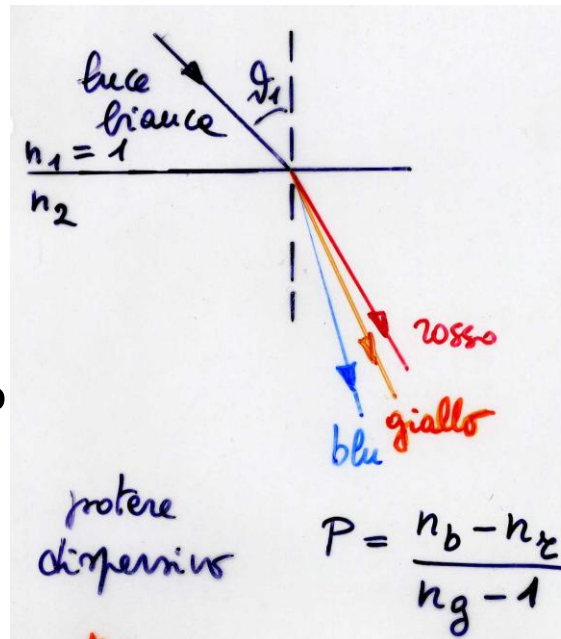 luce
bianca
ϑ1
n1 = 1
n2
rosso
giallo
blu
potere
dispersivo
P = (nb - nr) / (ng - 1)